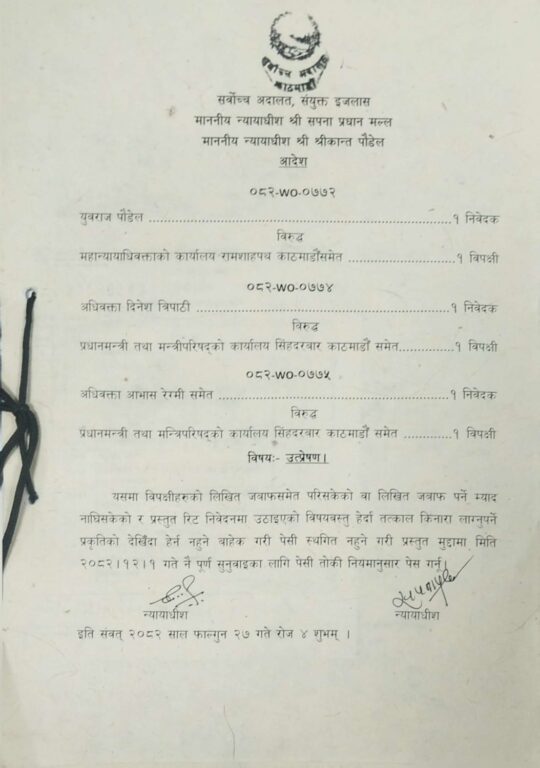 सर्वोच्च अदालत
काठमाडौं
सर्वोच्च अदालत, संयुक्त इजलास
माननीय न्यायाधीश श्री सपना प्रधान मल्ल
माननीय न्यायाधीश श्री श्रीकान्त पौडेल
आदेश
०८२-WO-०७७२
युवराज पौडेल ........................................................................१ निवेदक
विरुद्ध
महान्यायाधिवक्ताको कार्यालय रामशाहपथ काठमाडौंसमेत ..........................१ विपक्षी
०८२-WO-०७७४
अधिवक्ता दिनेश त्रिपाठी ............................................................१ निवेदक
विरुद्ध
प्रधानमन्त्री तथा मन्त्रीपरिषद्को कार्यालय सिंहदरवार काठमाडौं समेत.............१ विपक्षी
०८२-WO-०७७५
अधिवक्ता आभास रेग्मी समेत .........................................................१ निवेदक
विरुद्ध
प्रधानमन्त्री तथा मन्त्रिपरिषद्को कार्यालय सिंहदरवार काठमाडौं समेत ............१ विपक्षी
विषयः- उत्प्रेषण।
यसमा विपक्षीहरुको लिखित जवाफसमेत परिसकेको वा लिखित जवाफ पर्ने म्याद
नाघिसकेको र प्रस्तुत रिट निवेदनमा उठाइएको विषयवस्तु हेर्दा तत्काल किनारा लाग्नुपर्ने
प्रकृतिको देखिँदा हेर्न नहुने बाहेक गरी पेसी स्थगित नहुने गरी प्रस्तुत मुद्दामा मिति
२०८२।१२।१ गते नै पूर्ण सुनुवाइका लागि पेसी तोकी नियमानुसार पेस गर्नू।
न्यायाधीश न्यायाधीश
इति संवत् २०८२ साल फाल्गुन २७ गते रोज ४ शुभम् ।